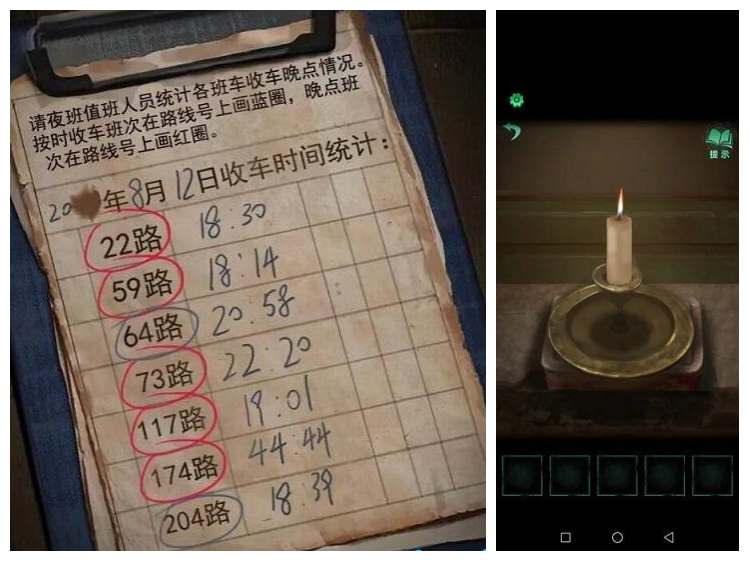 请夜班值班人员统计各班车收车晚点情况。
按时收车班次在路线号上画蓝圈，晚点班
次在路线号上画红圈。
20 年8月12日收车时间统计：
22路 18:30
59路 18:14
64路 20:58
73路 22:20
117路 19:01
174路 44:44
204路 18:39
提示